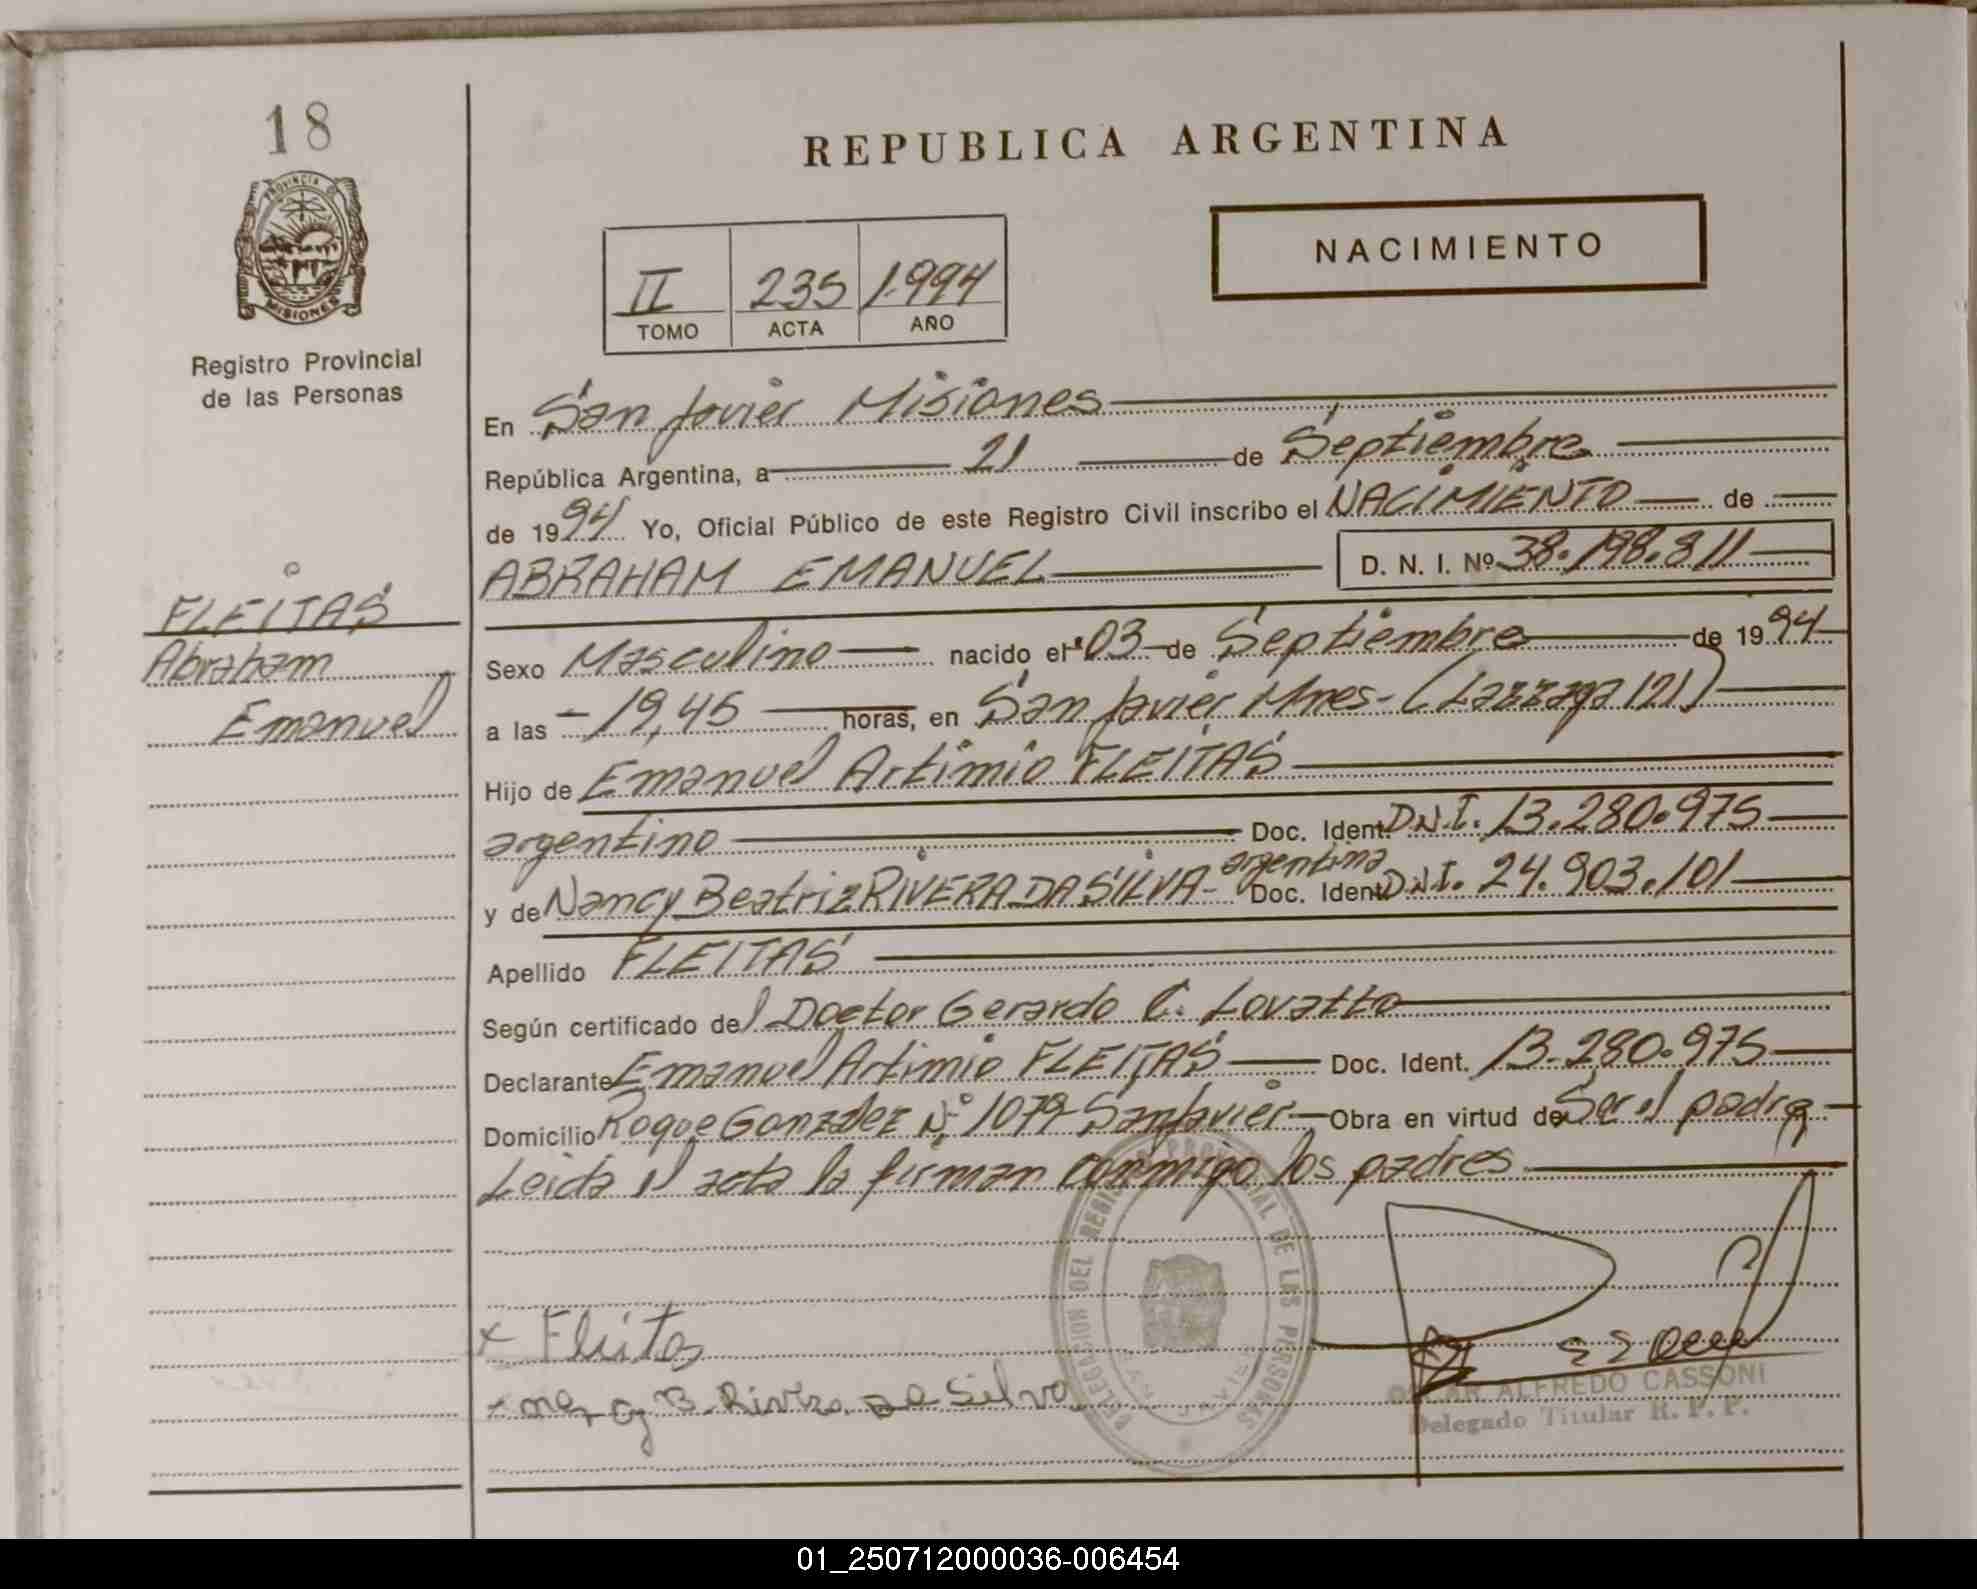 18
PROVINCIA DE
MISIONES
Registro Provincial
de las Personas
FLEITAS
Abraham
Emanuel
REPUBLICA ARGENTINA
NACIMIENTO
II 235 1.994
TOMO ACTA AÑO
En San Javier Misiones
República Argentina, a 21 de Septiembre
de 1994 Yo, Oficial Público de este Registro Civil inscribo el NACIMIENTO de
ABRAHAM EMANUEL D. N. I. Nº 38.198.811
Sexo Masculino nacido el 03 de Septiembre de 1994
a las 19,45 horas, en San Javier Mnes- (Lazzaga 121)
Hijo de Emanuel Artimio FLEITAS
argentino Doc. Ident. D.N.I. 13.280.975
y de Nancy Beatriz RIVERA DA SILVA - argentina Doc. Ident. D.N.I. 24.903.101
Apellido FLEITAS
Según certificado del Doctor Gerardo C. Lovatto
Declarante Emanuel Artimio FLEITAS Doc. Ident. 13.280.975
Domicilio Roque Gonzalez Nº 1079 San Javier Obra en virtud de Ser el padre
Leida el acta la firman conmigo los padres
DELEGACION DEL REGISTRO PROVINCIAL DE LAS PERSONAS
SAN JAVIER
x Fleitas
B. Rivera Da Silva
OSCAR ALFREDO CASSONI
Delegado Titular R. P. P.
01_250712000036-006454